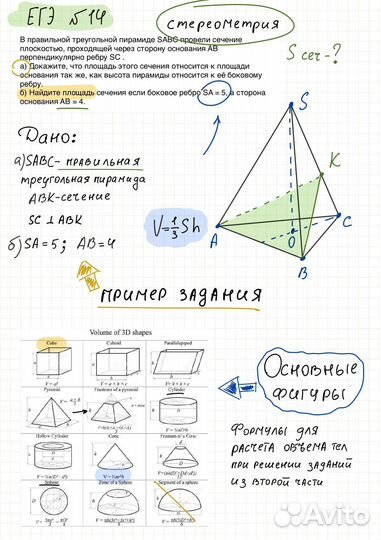 ЕГЭ №14
стереометрия
В правильной треугольной пирамиде SABC провели сечение
плоскостью, проходящей через сторону основания AB
перпендикулярно ребру SC .
а) Докажите, что площадь этого сечения относится к площади
основания так же, как высота пирамиды относится к её боковому
ребру.
б) Найдите площадь сечения если боковое ребро SA = 5, а сторона
основания AB = 4.
S сеч-?
Дано:
а) SABC- правильная
треугольная пирамида
ABK-сечение
SC ⊥ ABK
б) SA=5; AB=4
V=1/3 Sh
S
K
A
O
C
B
пример задания
Volume of 3D shapes
Cube
Cuboid
Parallelepiped
V = a³
V = a × b × c
V = a × b × c
Pyramid
Frustum of a pyramid
Cylinder
Hollow Cylinder
Cone
Frustum of a Cone
Sphere
Zone of a Sphere
Segment of a sphere
Основные
фигуры
Формулы для
расчета объема тел
при решении заданий
из второй части
Avito